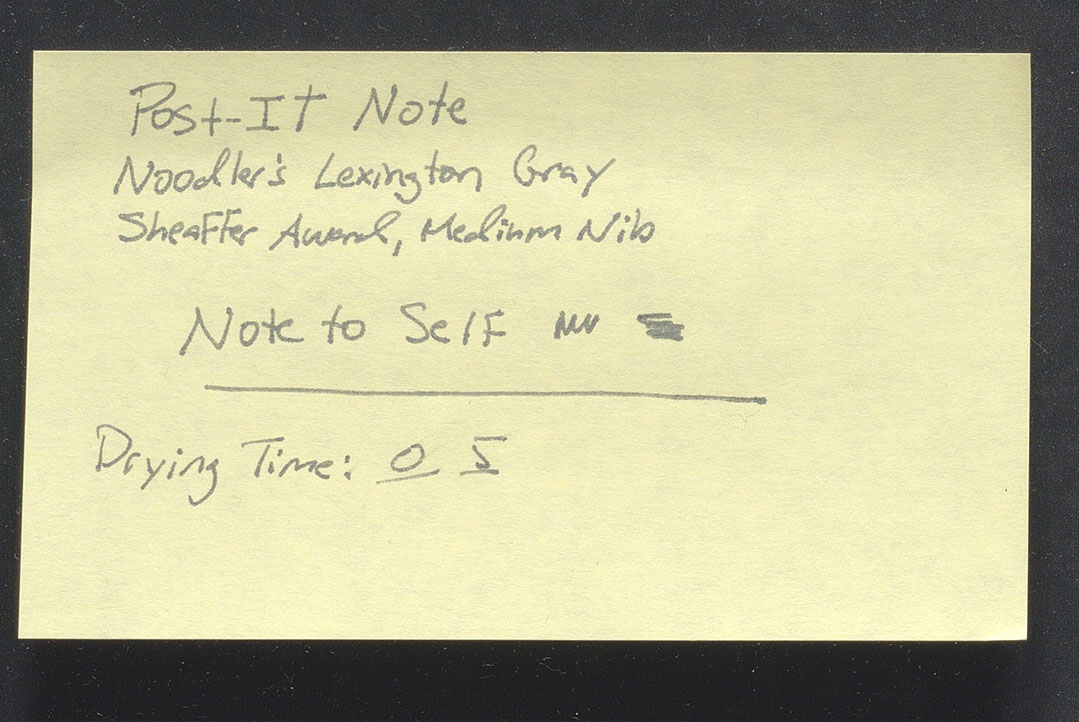 Post-It Note
Noodler's Lexington Gray
Sheaffer Award, Medium Nib
Note to Self
Drying Time: 0 5